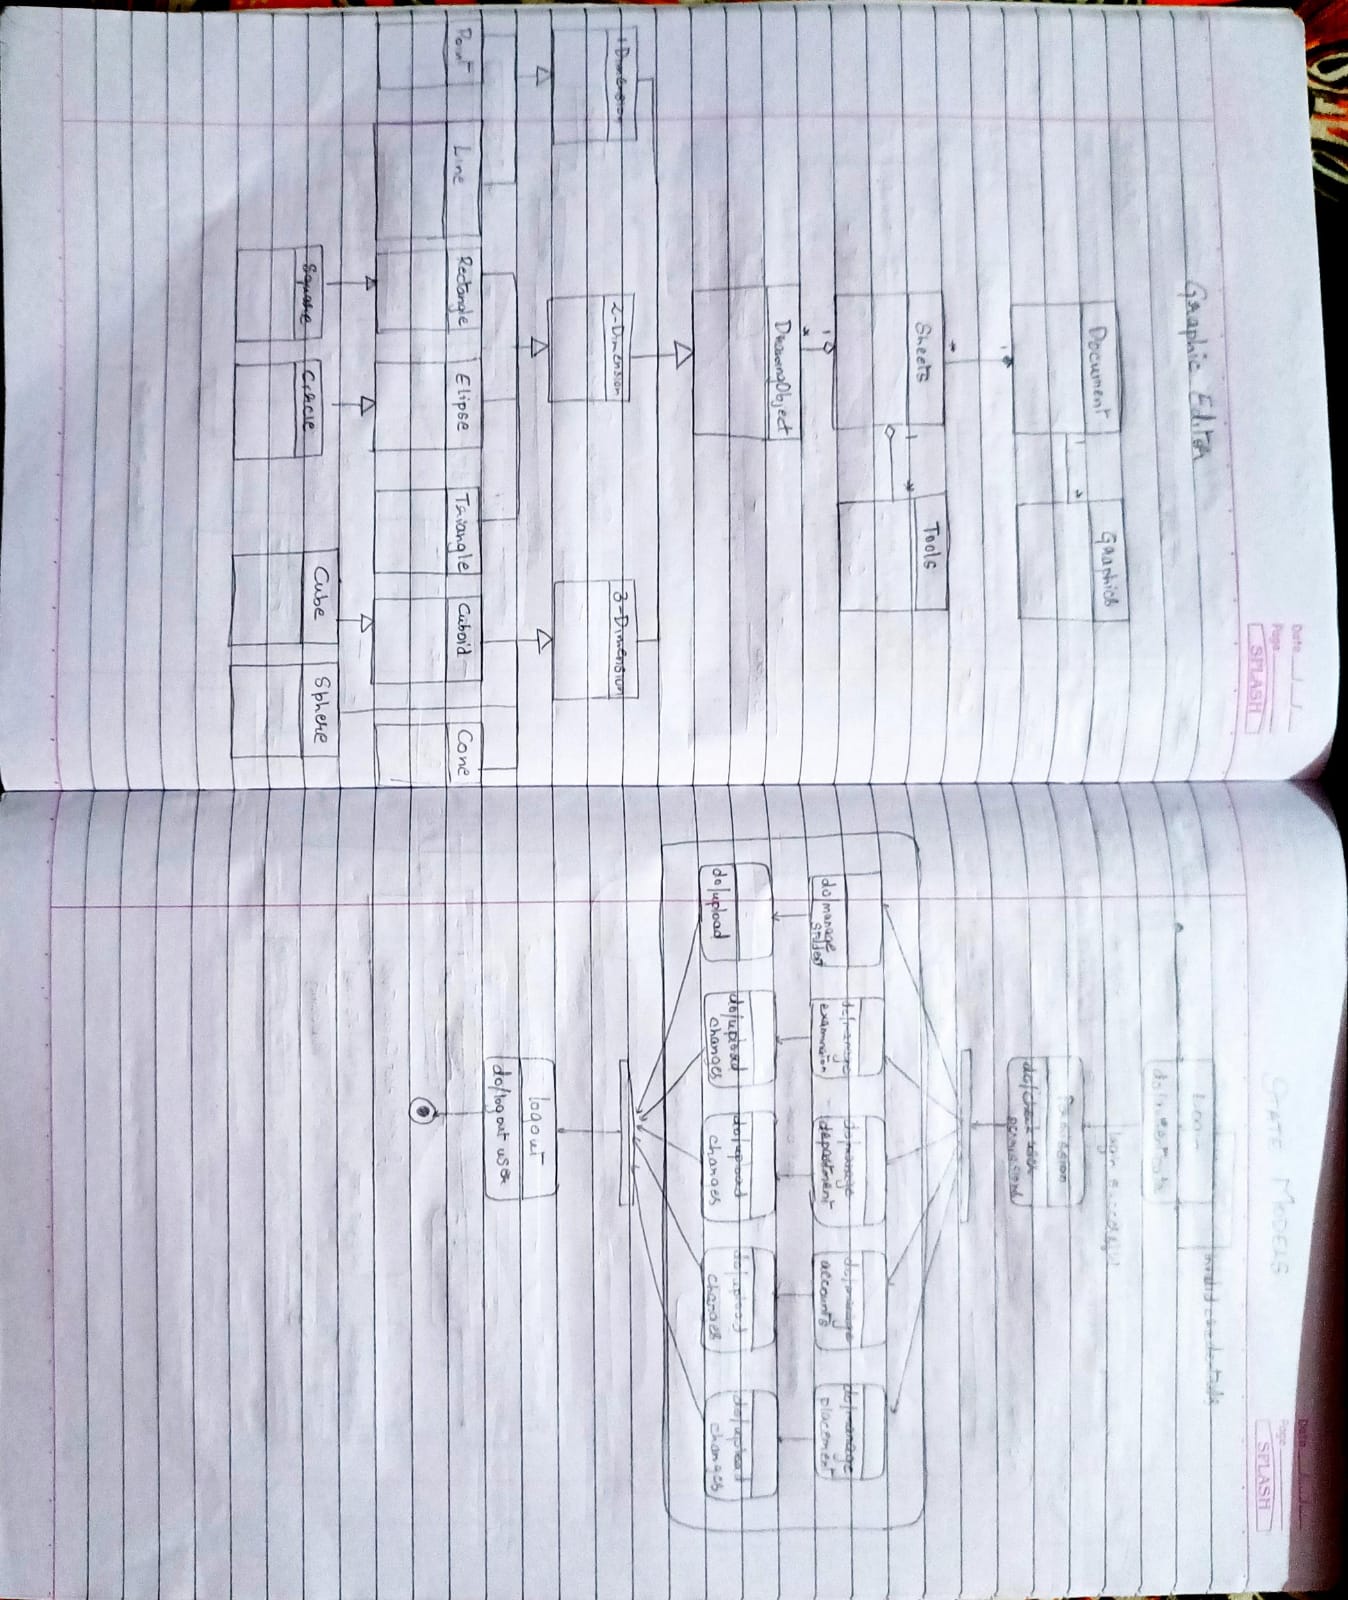 Date
Page
SPLASH
Graphic Editor
Document
Graphics
1
1
*
*
Sheets
Tools
1
*
1
*
DrawingObject
1 Dimension
2-Dimension
3-Dimension
Point
Line
Rectangle
Elipse
Triangle
Cuboid
Cone
Square
Circle
Cube
Sphere
Date
Page
SPLASH
STATE MODELS
Login
Permission
do/check user
permissions
do/manage
student
do/manage
examination
do/manage
department
do/manage
accounts
do/manage
placement
do/upload
do/upload
changes
do/upload
changes
do/upload
changes
do/upload
changes
logout
do/logout user